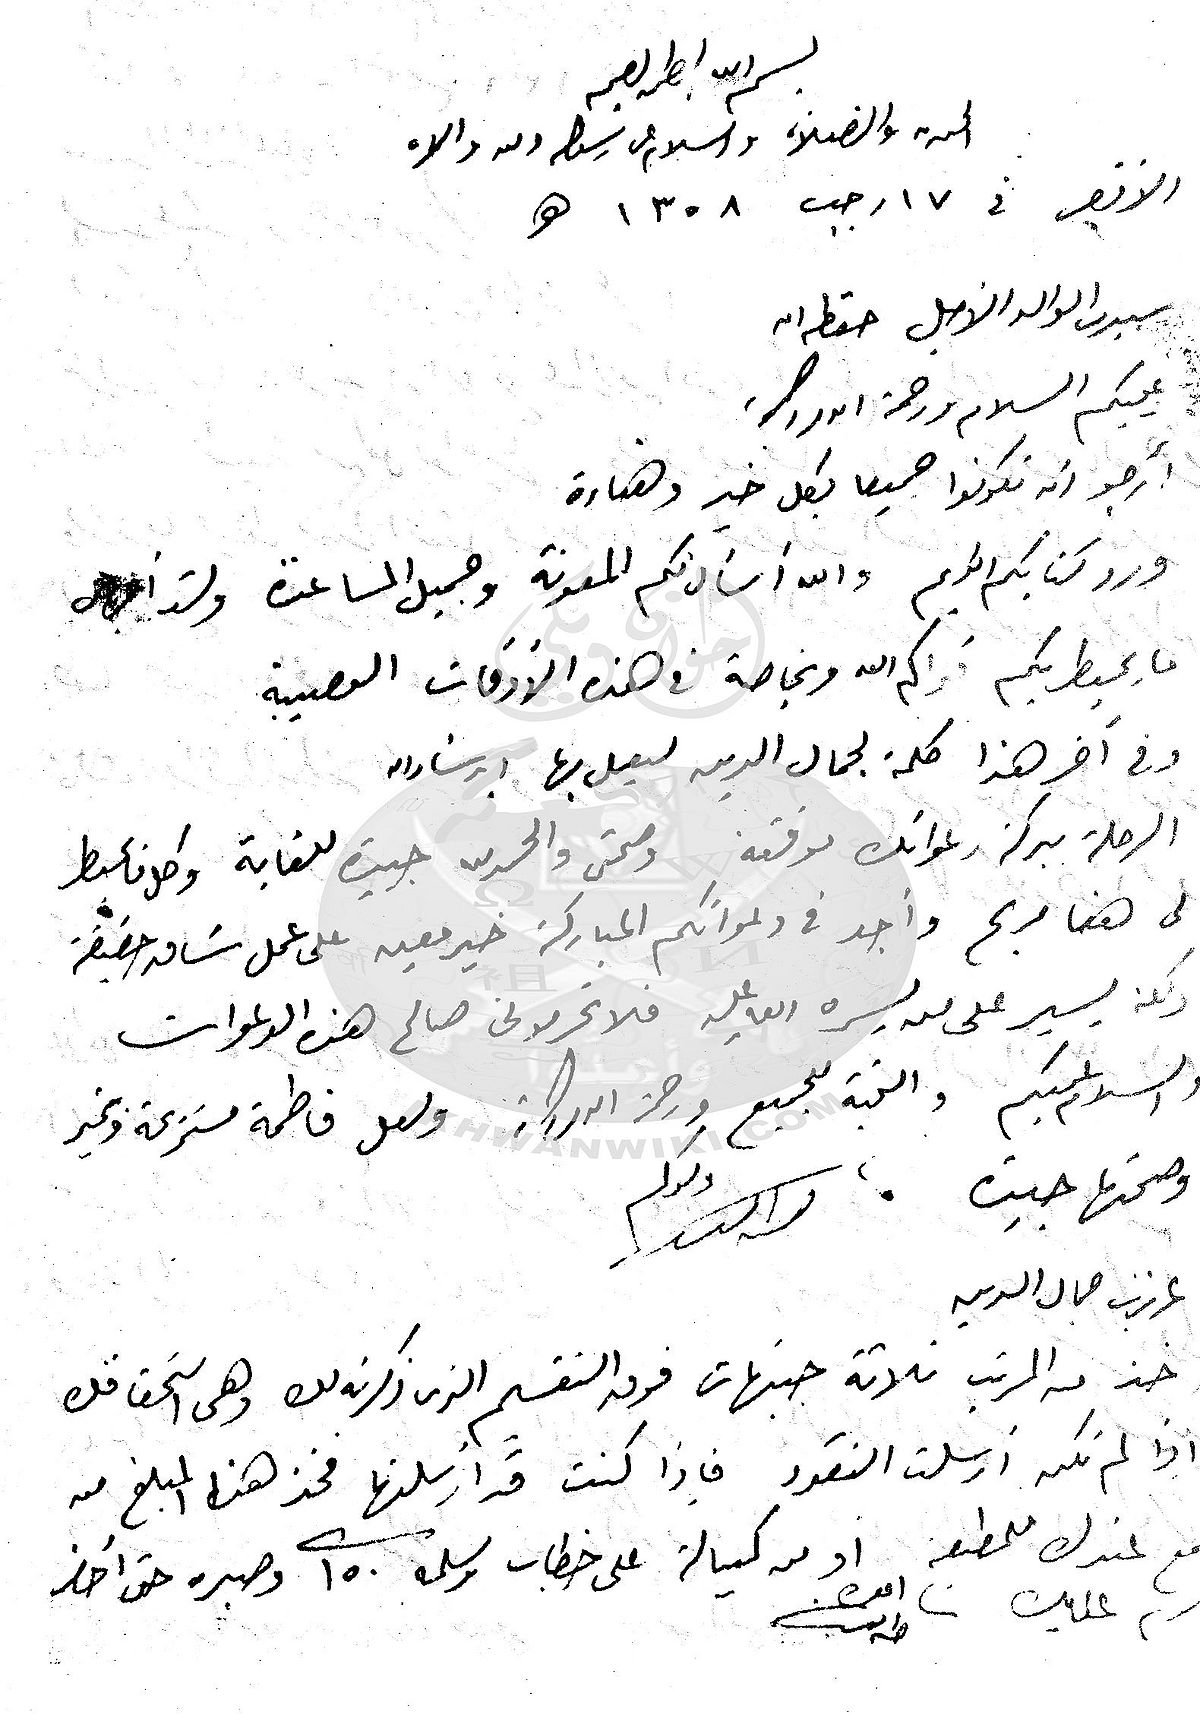 بسم الله الرحمن الرحيم
الحمد لله والصلاة والسلام على رسول الله ومن والاه
الأقصر في ١٧ رجب ١٣٥٨ هـ
سيدي الوالد الأجل حفظه الله
عليكم السلام ورحمة الله وبركاته
أرجو أن تكونوا جميعا بكل خير وهناءة
ورد كتابكم الكريم والله أسأل لكم المعونة وجميل المساعدة ولقد
ما يحيط بكم قواكم الله وبخاصة في هذه الأوقات العصيبة
وفي آخر هذا كلمة لجمال الدين ليعمل بها إن شاء الله
الرحلة ببركة دعواتك موفقة وصحتي والحمد لله جيدة للغاية وكل ما يحيط
لي هنا مريح وأجد في دعواتكم المباركة خير معين على عمل شاق حقيقة
ولكنه يسير على من يسره الله عليه فلا تحرموني صالح هذه الدعوات
والسلام عليكم والتحية للجميع ورحمة الله وبركاته ولعل فاطمة مستريحة وبخير
وصحتها جيدة
ولدكم
حسن البنا
عزيزي جمال الدين
خذ من المرتب ثلاثة جنيهات فوق التقسيم الذي ذكرته لك وهي استحقاقك
إذا لم تكن أرسلت النقود فإذا كنت قد أرسلتها فخذ هذا المبلغ من
مع عندك للمطبعة أو من كمبيالة على خطاب وسلمه ١٥٠ وصبره حتى آخذ
IKHWANWIKI.COM